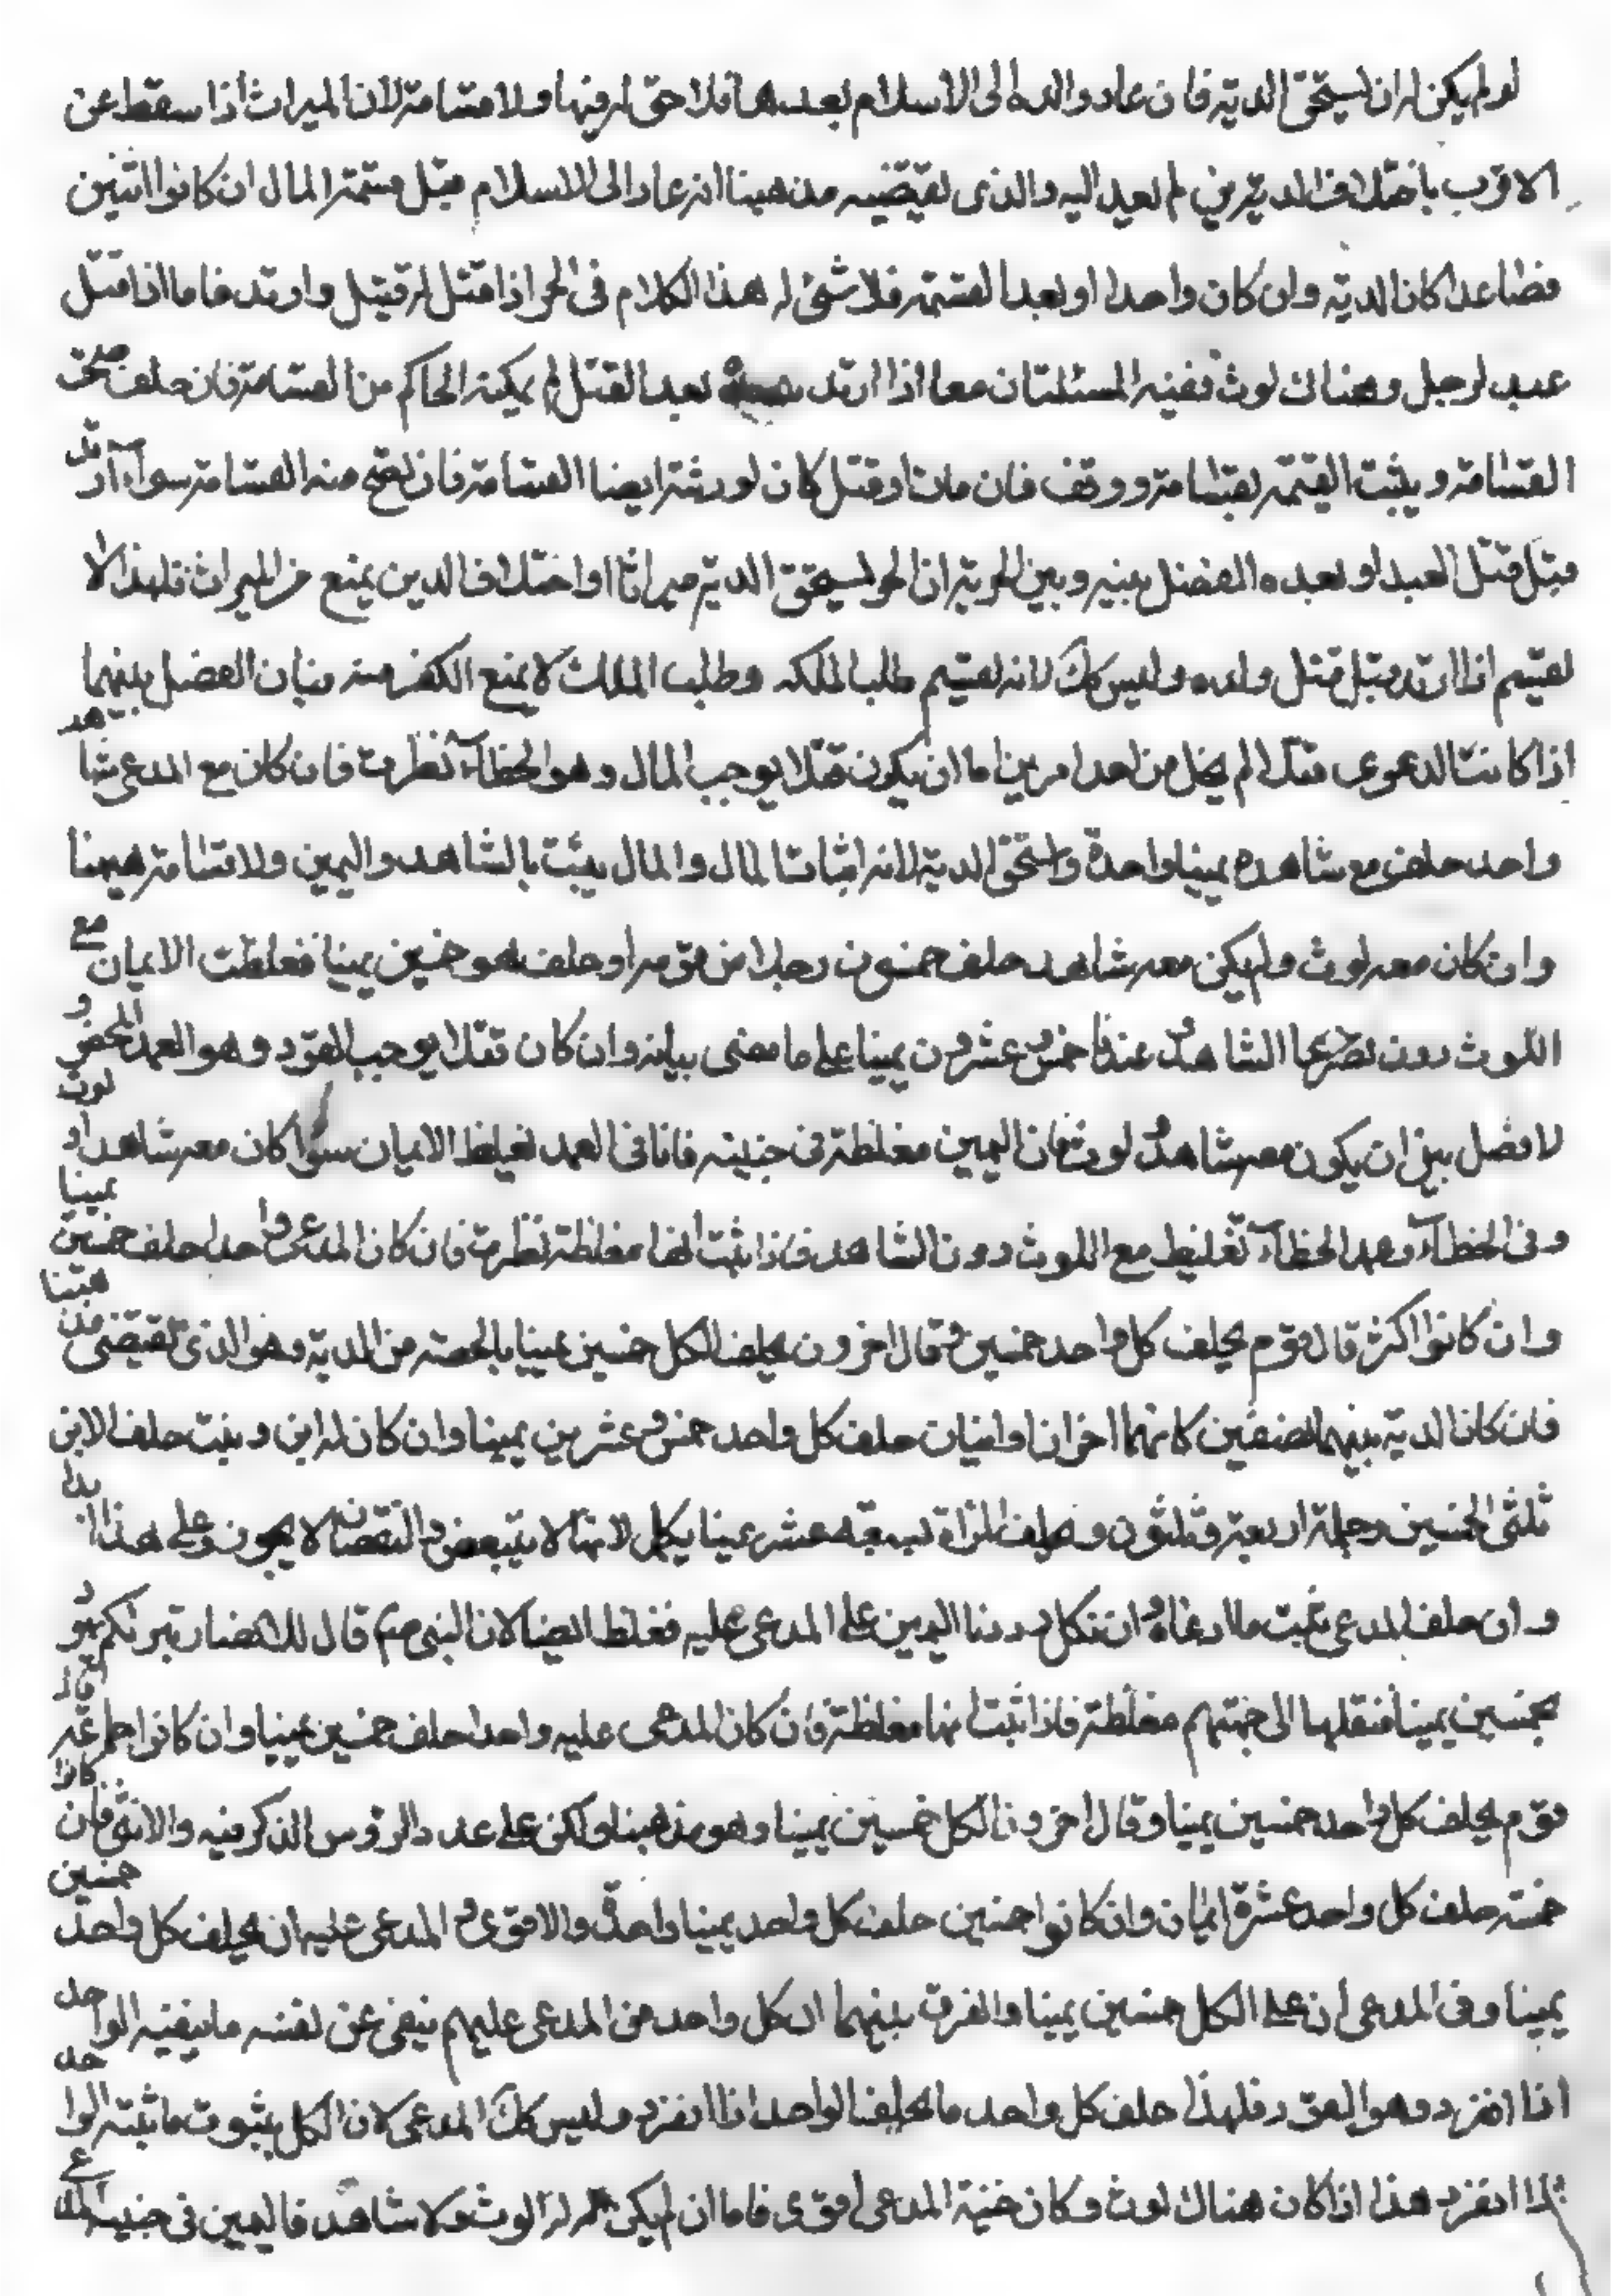 لو لم يكن له ان يستحق الدية فان عاد والده الى الاسلام بعد هذا فلا حق له فيها ولا قسامة لان الميراث اذا سقط عن
الاقرب باختلاف الدين لم يعد اليه والذي يقتضيه مذهبنا انه عاد الى الاسلام قبل قسمة المال ان كانوا اثنين
فصاعدا كان الدية وان كان واحدا او بعد القسمة فلا شئ له هذا الكلام في الحر اذا قتل له قتيل وارتد فاما اذا قتل
عبد لرجل وهناك لوث ففيه المسئلتان معا اذا ارتد بعد القتل لم يمكنه الحاكم من القسامة فان حلف صحت
القسامة ويثبت القيمة بقسامة ووقف فان مات او قتل كان لورثته ايضا القسامة فان يصح منه القسامة سواء ارتد
قبل قتل العبد او بعده الفصل بينه وبين الحر انه ان الحر يستحق الدية ميراثا واختلاف الدين يمنع من الميراث فلهذا لا
يقسم اذا ارتد قبل قتل ولده وليس كك لانه يقسم طلبا لملكه وطلب الملك لا يمنع الكفر منه فبان الفصل بينهما
اذا كانت الدعوى قتلا لم يخل من احد امرين اما ان يكون قتلا يوجب المال وهو الخطاء نظرت فان كان مع المدعي شاهد
واحد حلف مع شاهده يمينا واحدة واستحق الدية لانه اثبات المال والمال يثبت بالشاهد واليمين ولا قسامة هيهنا
وان كان معه لوث ولم يكن معه شاهد حلف خمسون رجلا من قومه او حلف هو خمسين يمينا فغلظت الايمان مع
اللوث دون الشاهد عندنا خمس وعشرون يمينا على ما مضى بيانه وان كان قتلا يوجب القود وهو العمد المحض و
لا فصل بين ان يكون معه شاهد او لوث فان اليمين مغلظة في جنبته فانا في العمد نغلظ الايمان سواء كان معه شاهد او لوث
وفي الخطاء وعمد الخطاء تغليظ مع اللوث دون الشاهد فاذا ثبت انها مغلظة نظرت فان كان المدعي واحدا حلف خمسين يمينا
وان كانوا اكثر قال قوم يحلف كل واحد خمسين وقال اخرون يحلف الكل خمسين يمينا بالحصة من الدية وهو الذي يقتضي مذهبنا
فان كان الدية بينهما نصفين كانهما اخوان او ابنان حلف كل واحد خمس وعشرين يمينا وان كان له ابن وبنت حلف الابن
ثلثي الخمسين وجملته اربعة وثلثون وتحلف المراة سبعة عشر يمينا يكمل لانها لا يتبعض والنقصان لا يجوز وعلى هذا ابدا
وان حلف المدعي ثبت ما ادعاه وان نكل رددنا اليمين على المدعى عليه فغلظ ايضا لان النبي صم قال للانصار تبرئكم يهود
بخمسين يمينا فنقلها الى جهتهم مغلظة فاذا ثبت انها مغلظة فان كان المدعى عليه واحدا حلف خمسين يمينا وان كانوا جماعة قال
قوم يحلف كل واحد خمسين يمينا وقال اخرون الكل خمسين يمينا وهو مذهبنا ولكن على عدد الرؤس الذكر فيه والانثى فان كانوا
خمسة حلف كل واحد عشرة ايمان وان كانوا خمسين حلف كل واحد يمينا واحدة والاقوى في المدعى عليه ان يحلف كل واحد خمسين
يمينا وفي المدعي ان على الكل خمسين يمينا والفرق بينهما ان كل واحد من المدعى عليهم ينفي عن نفسه ما ينفيه الواحد
اذا انفرد وهو القود فلهذا حلف كل واحد ما يحلف الواحد اذا انفرد وليس كك المدعي لان الكل يثبوت ما يثبته الواحد
اذا انفرد هذا اذا كان هناك لوث وكان جنبة المدعي اقوى فاما ان لم يكن له لوث ولا شاهد فاليمين في جنبة المدعى